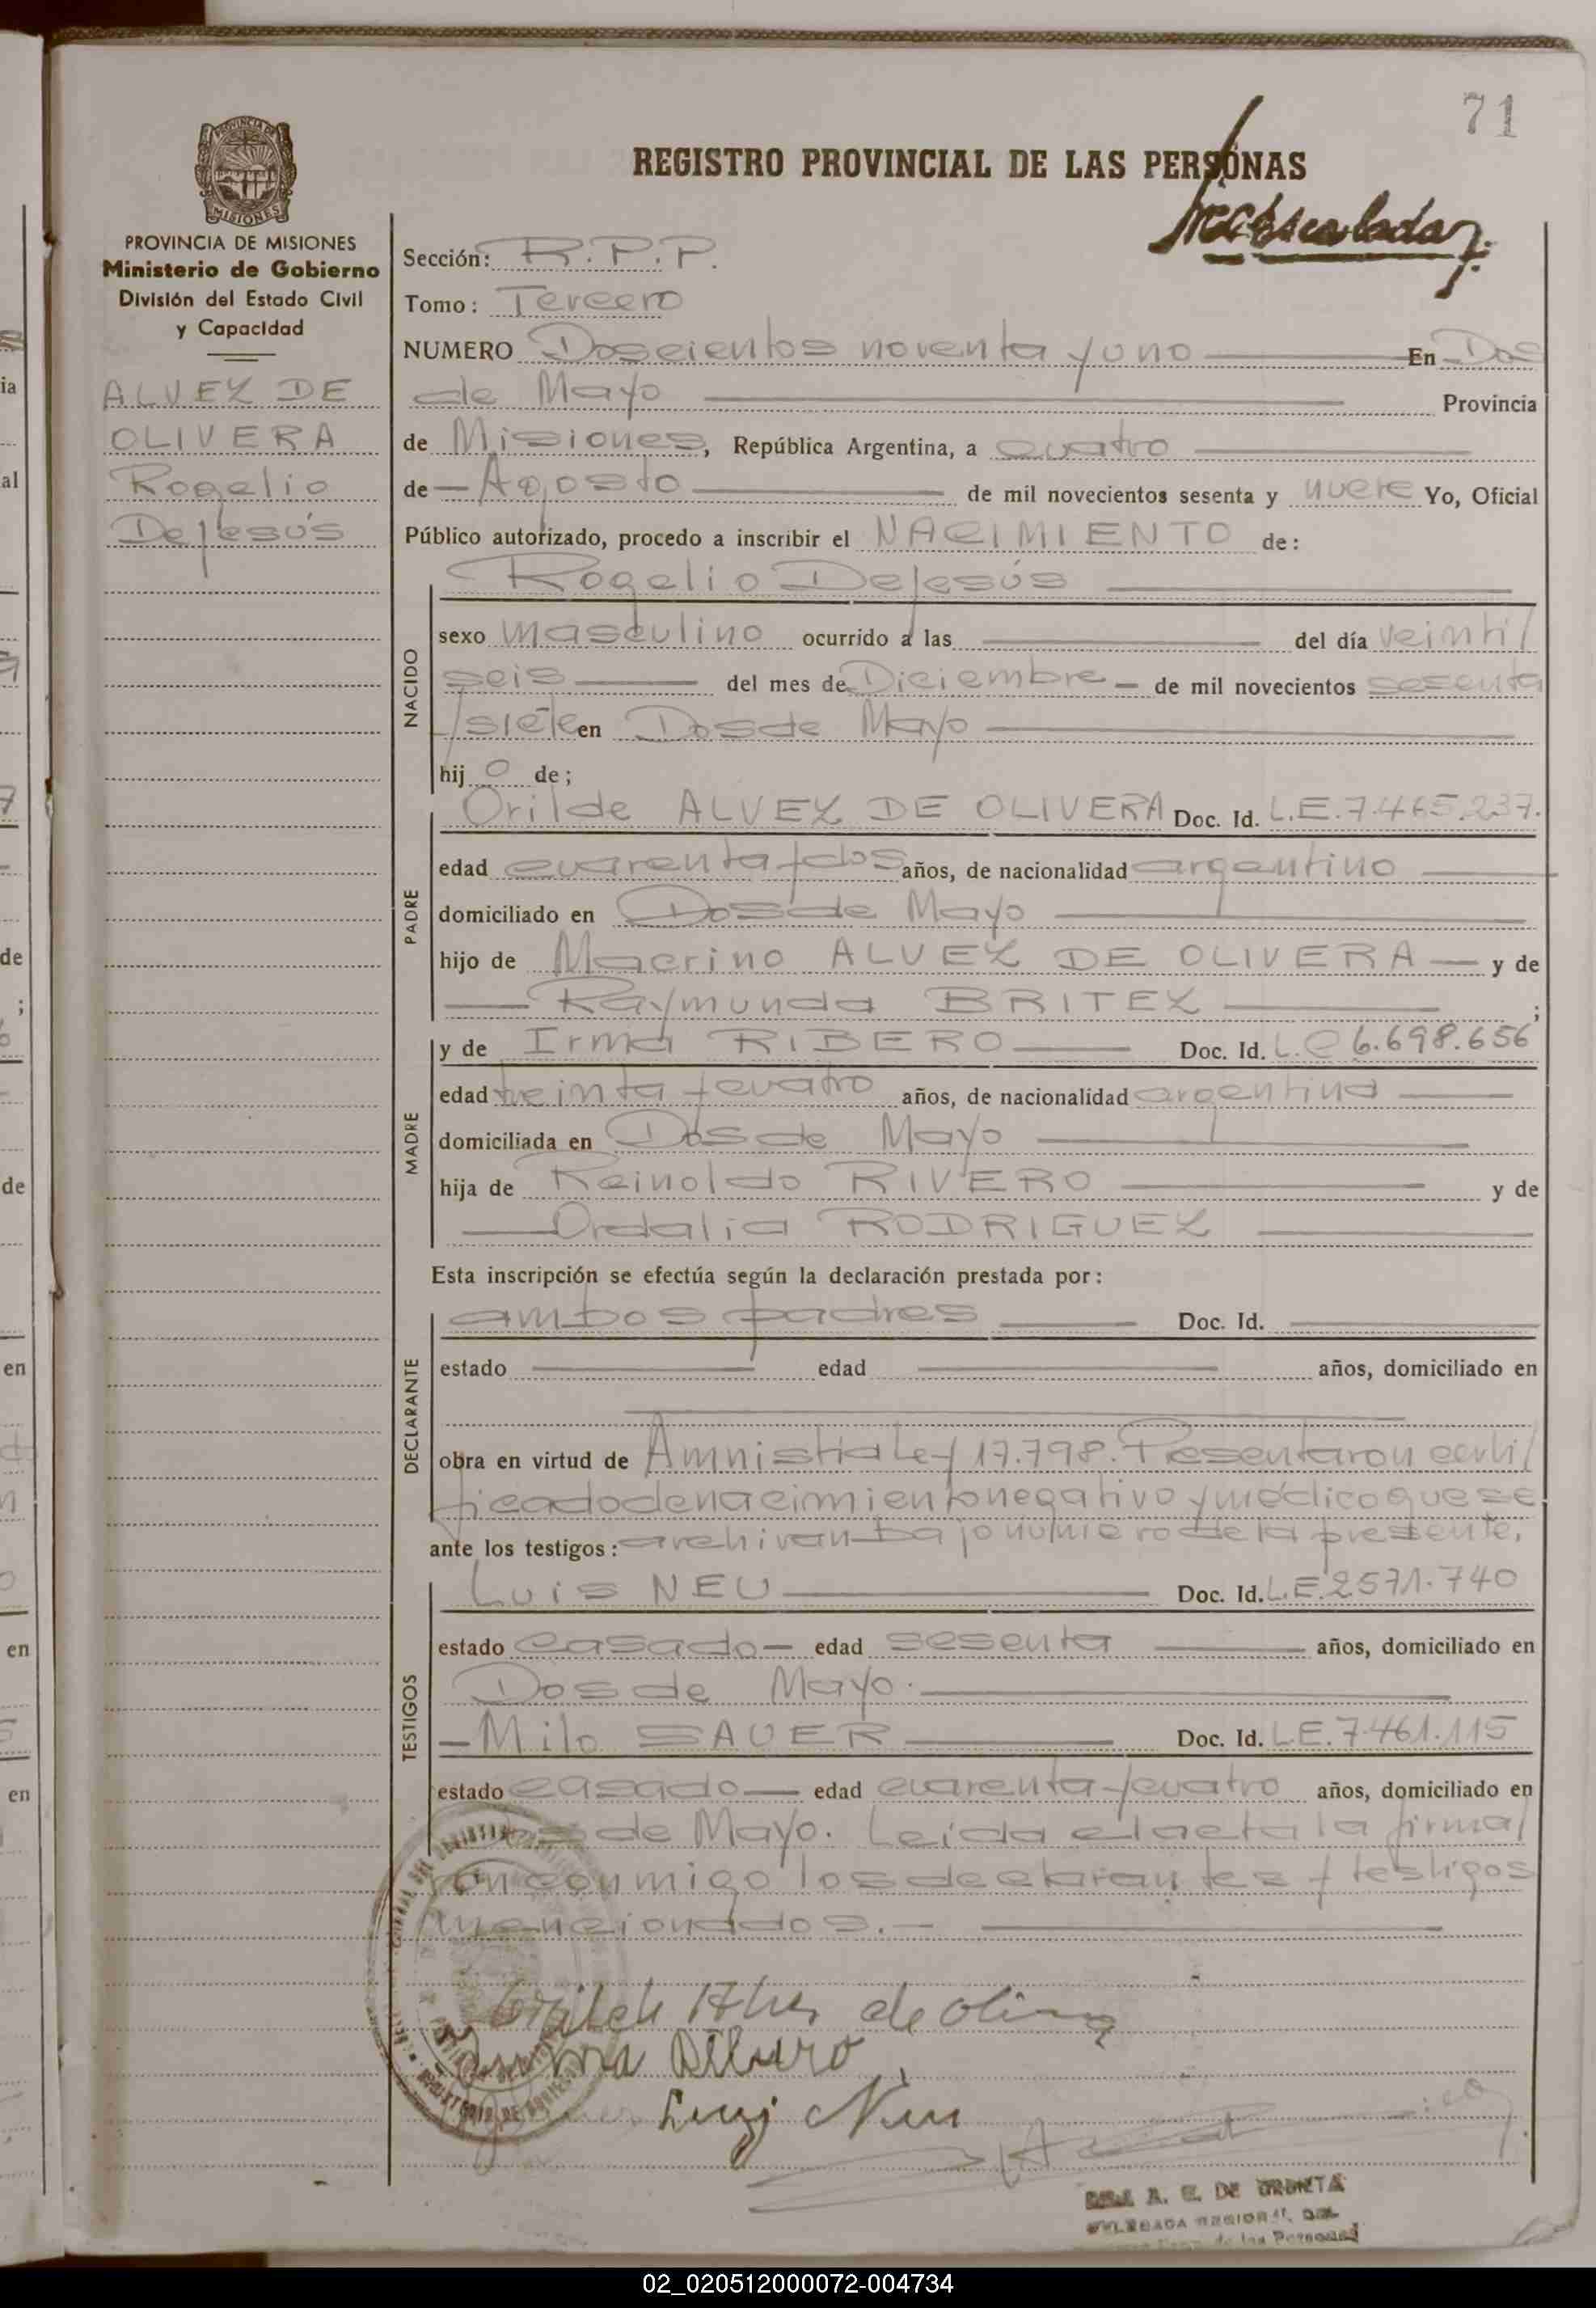 71
REGISTRO PROVINCIAL DE LAS PERSONAS
PROVINCIA DE MISIONES
Ministerio de Gobierno
División del Estado Civil
y Capacidad
ALVEZ DE
OLIVERA
Rogelio
DeJesús
Sección: R.P.P.
Tomo: Tercero
NUMERO Doscientos noventa y uno En Dos
de Mayo Provincia
de Misiones, República Argentina, a cuatro
de Agosto de mil novecientos sesenta y nueve Yo, Oficial
Público autorizado, procedo a inscribir el NACIMIENTO de:
Rogelio DeJesús
NACIDO
sexo masculino ocurrido a las del día veinti/
seis del mes de Diciembre de mil novecientos sesenta
y siete en Dos de Mayo
hij o de;
PADRE
Orilde ALVEZ DE OLIVERA Doc. Id. L.E. 7.465.237.
edad cuarenta y dos años, de nacionalidad argentino
domiciliado en Dos de Mayo
hijo de Macrino ALVEZ DE OLIVERA y de
Raymunda BRITEZ ;
MADRE
y de Irma RIBERO Doc. Id. L.C 6.698.656
edad treinta y cuatro años, de nacionalidad argentina
domiciliada en Dos de Mayo
hija de Reinoldo RIVERO y de
Ordalia RODRIGUEZ
Esta inscripción se efectúa según la declaración prestada por:
DECLARANTE
ambos padres Doc. Id.
estado edad años, domiciliado en
obra en virtud de Amnistia Ley 17.798. Presentaron certi/
ficado de nacimiento negativo y médico que se
ante los testigos: archivan bajo número de la presente.
TESTIGOS
Luis NEU Doc. Id. L.E. 2571.740
estado casado edad sesenta años, domiciliado en
Dos de Mayo.
Milo SAUER Doc. Id. L.E. 7.461.115
estado casado edad cuarenta y cuatro años, domiciliado en
Dos de Mayo. Leída el acta la firma/
ron conmigo los declarantes y testigos
mencionados.-
de
A. E. DE
DELEGADA REGIONAL DEL
de las Personas
02_020512000072-004734